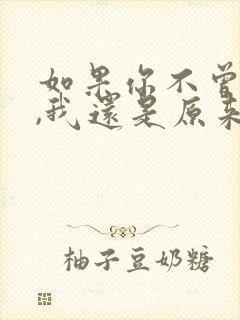 如果你不曾
,我還是原來
柚子豆奶糖